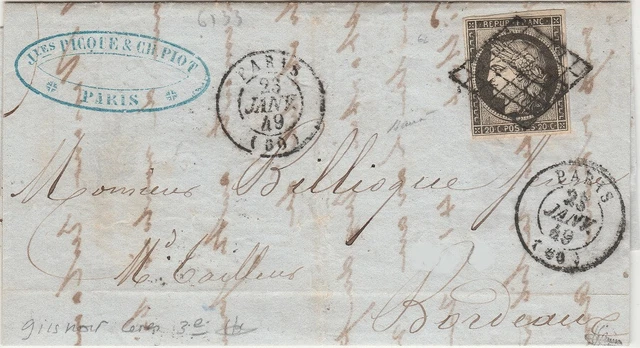 6133
62
J.NES PICQUE & CH. PIOT
PARIS
PARIS
23
JANV.
49
(60)
REPUB. FRANC.
20 C. POSTES 20 C.
PARIS
23
JANV.
49
(60)
Monsieur Billioque
Md Tailleur
Bordeaux
gris noir 3e